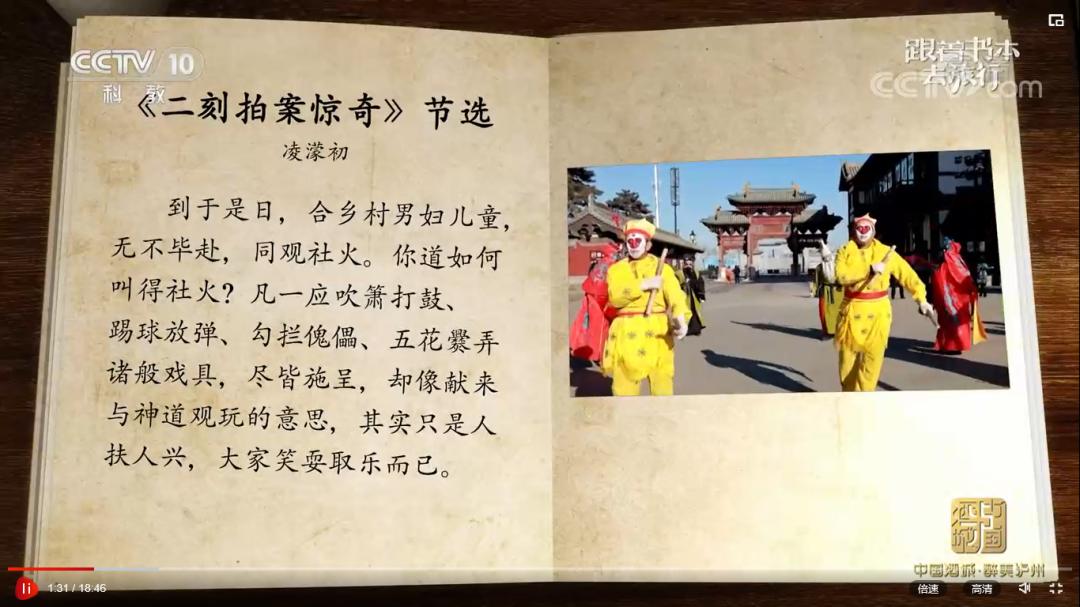 CCTV 10
科教
跟着书本
去旅行
CCTV.com
《二刻拍案惊奇》节选
凌濛初
到于是日，合乡村男妇儿童，
无不毕赴，同观社火。你道如何
叫得社火？凡一应吹箫打鼓、
踢球放弹、勾拦傀儡、五花爨弄
诸般戏具，尽皆施呈，却像献来
与神道观玩的意思，其实只是人
扶人兴，大家笑耍取乐而已。
中国酒城·醉美泸州
1:31 / 18:46
倍速
高清